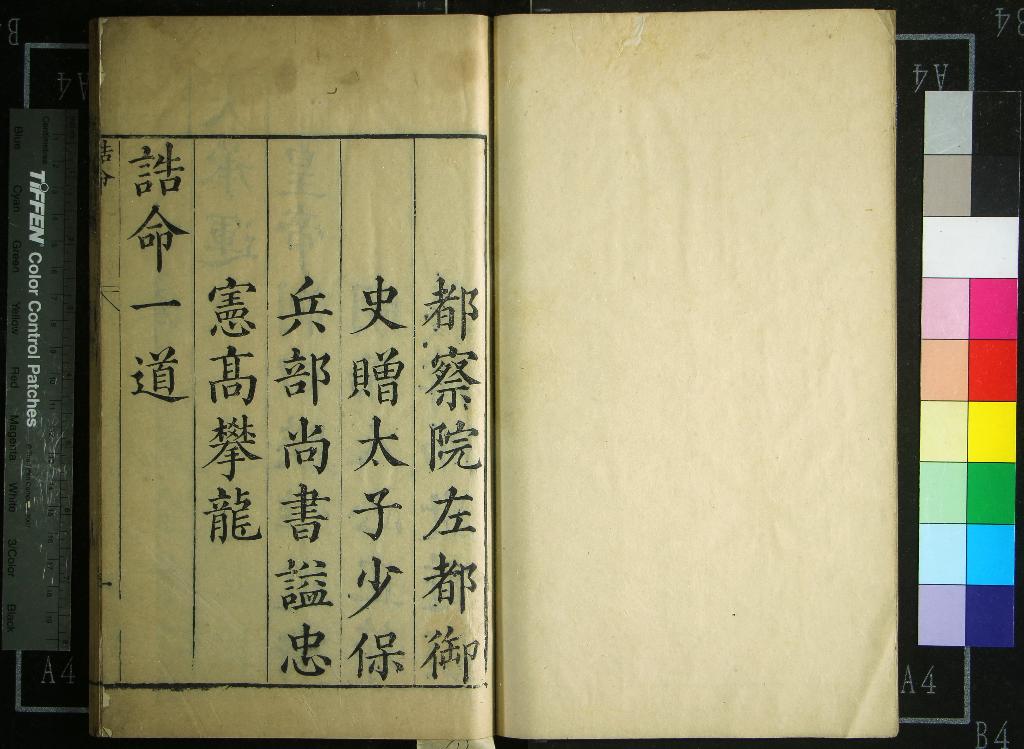 都察院左都御
史贈太子少保
兵部尚書謚忠
憲高攀龍
誥命一道
誥命
一
TIFFEN Color Control Patches
Centimetres
Blue Cyan Green Yellow Red Magenta White 3/Color Black
A4
A4
A4
A4
B4
B4
B4